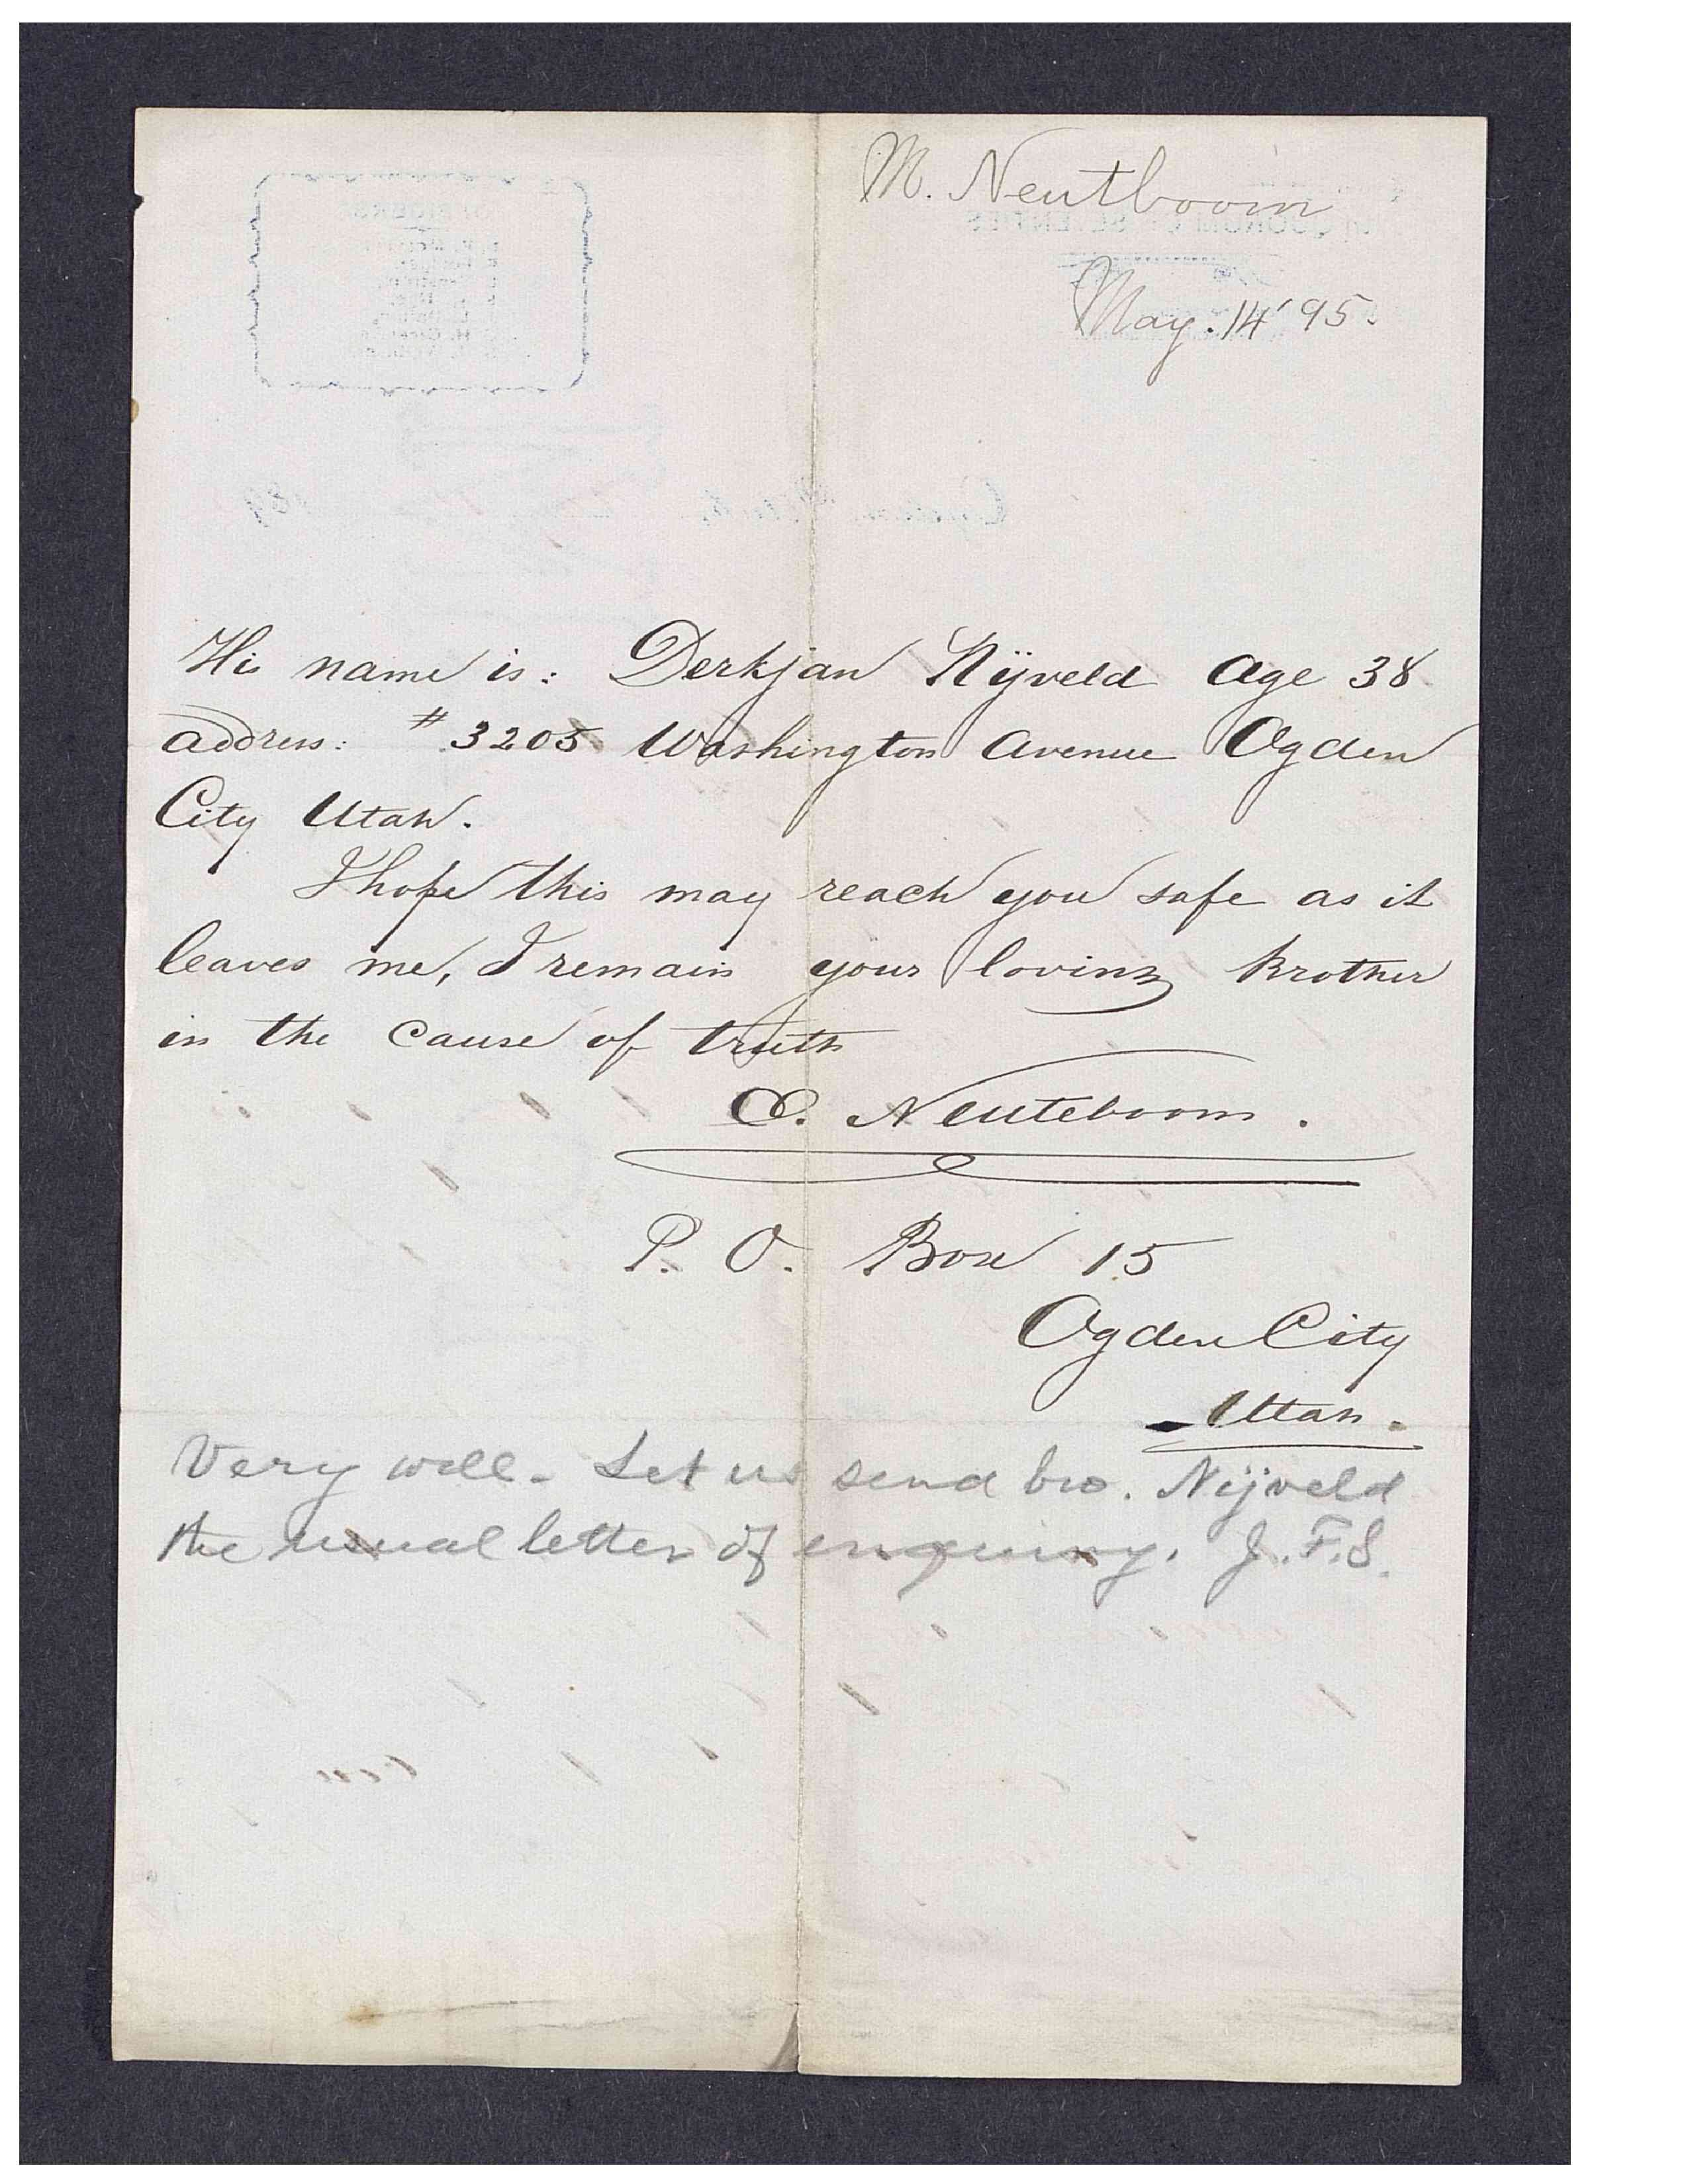 M. Neutboom
May. 14 '95.
His name is: Derkjan Nijveld Age 38
address: # 3205 Washington Avenue Ogden
City Utah.
I hope this may reach you safe as it
leaves me, I remain your loving Brother
in the cause of truth
Neuteboom.
P. O. Box 15
Ogden City
Utah.
Very well. Let us send bro. Nijveld
the usual letter of enquiry. J. F. S.